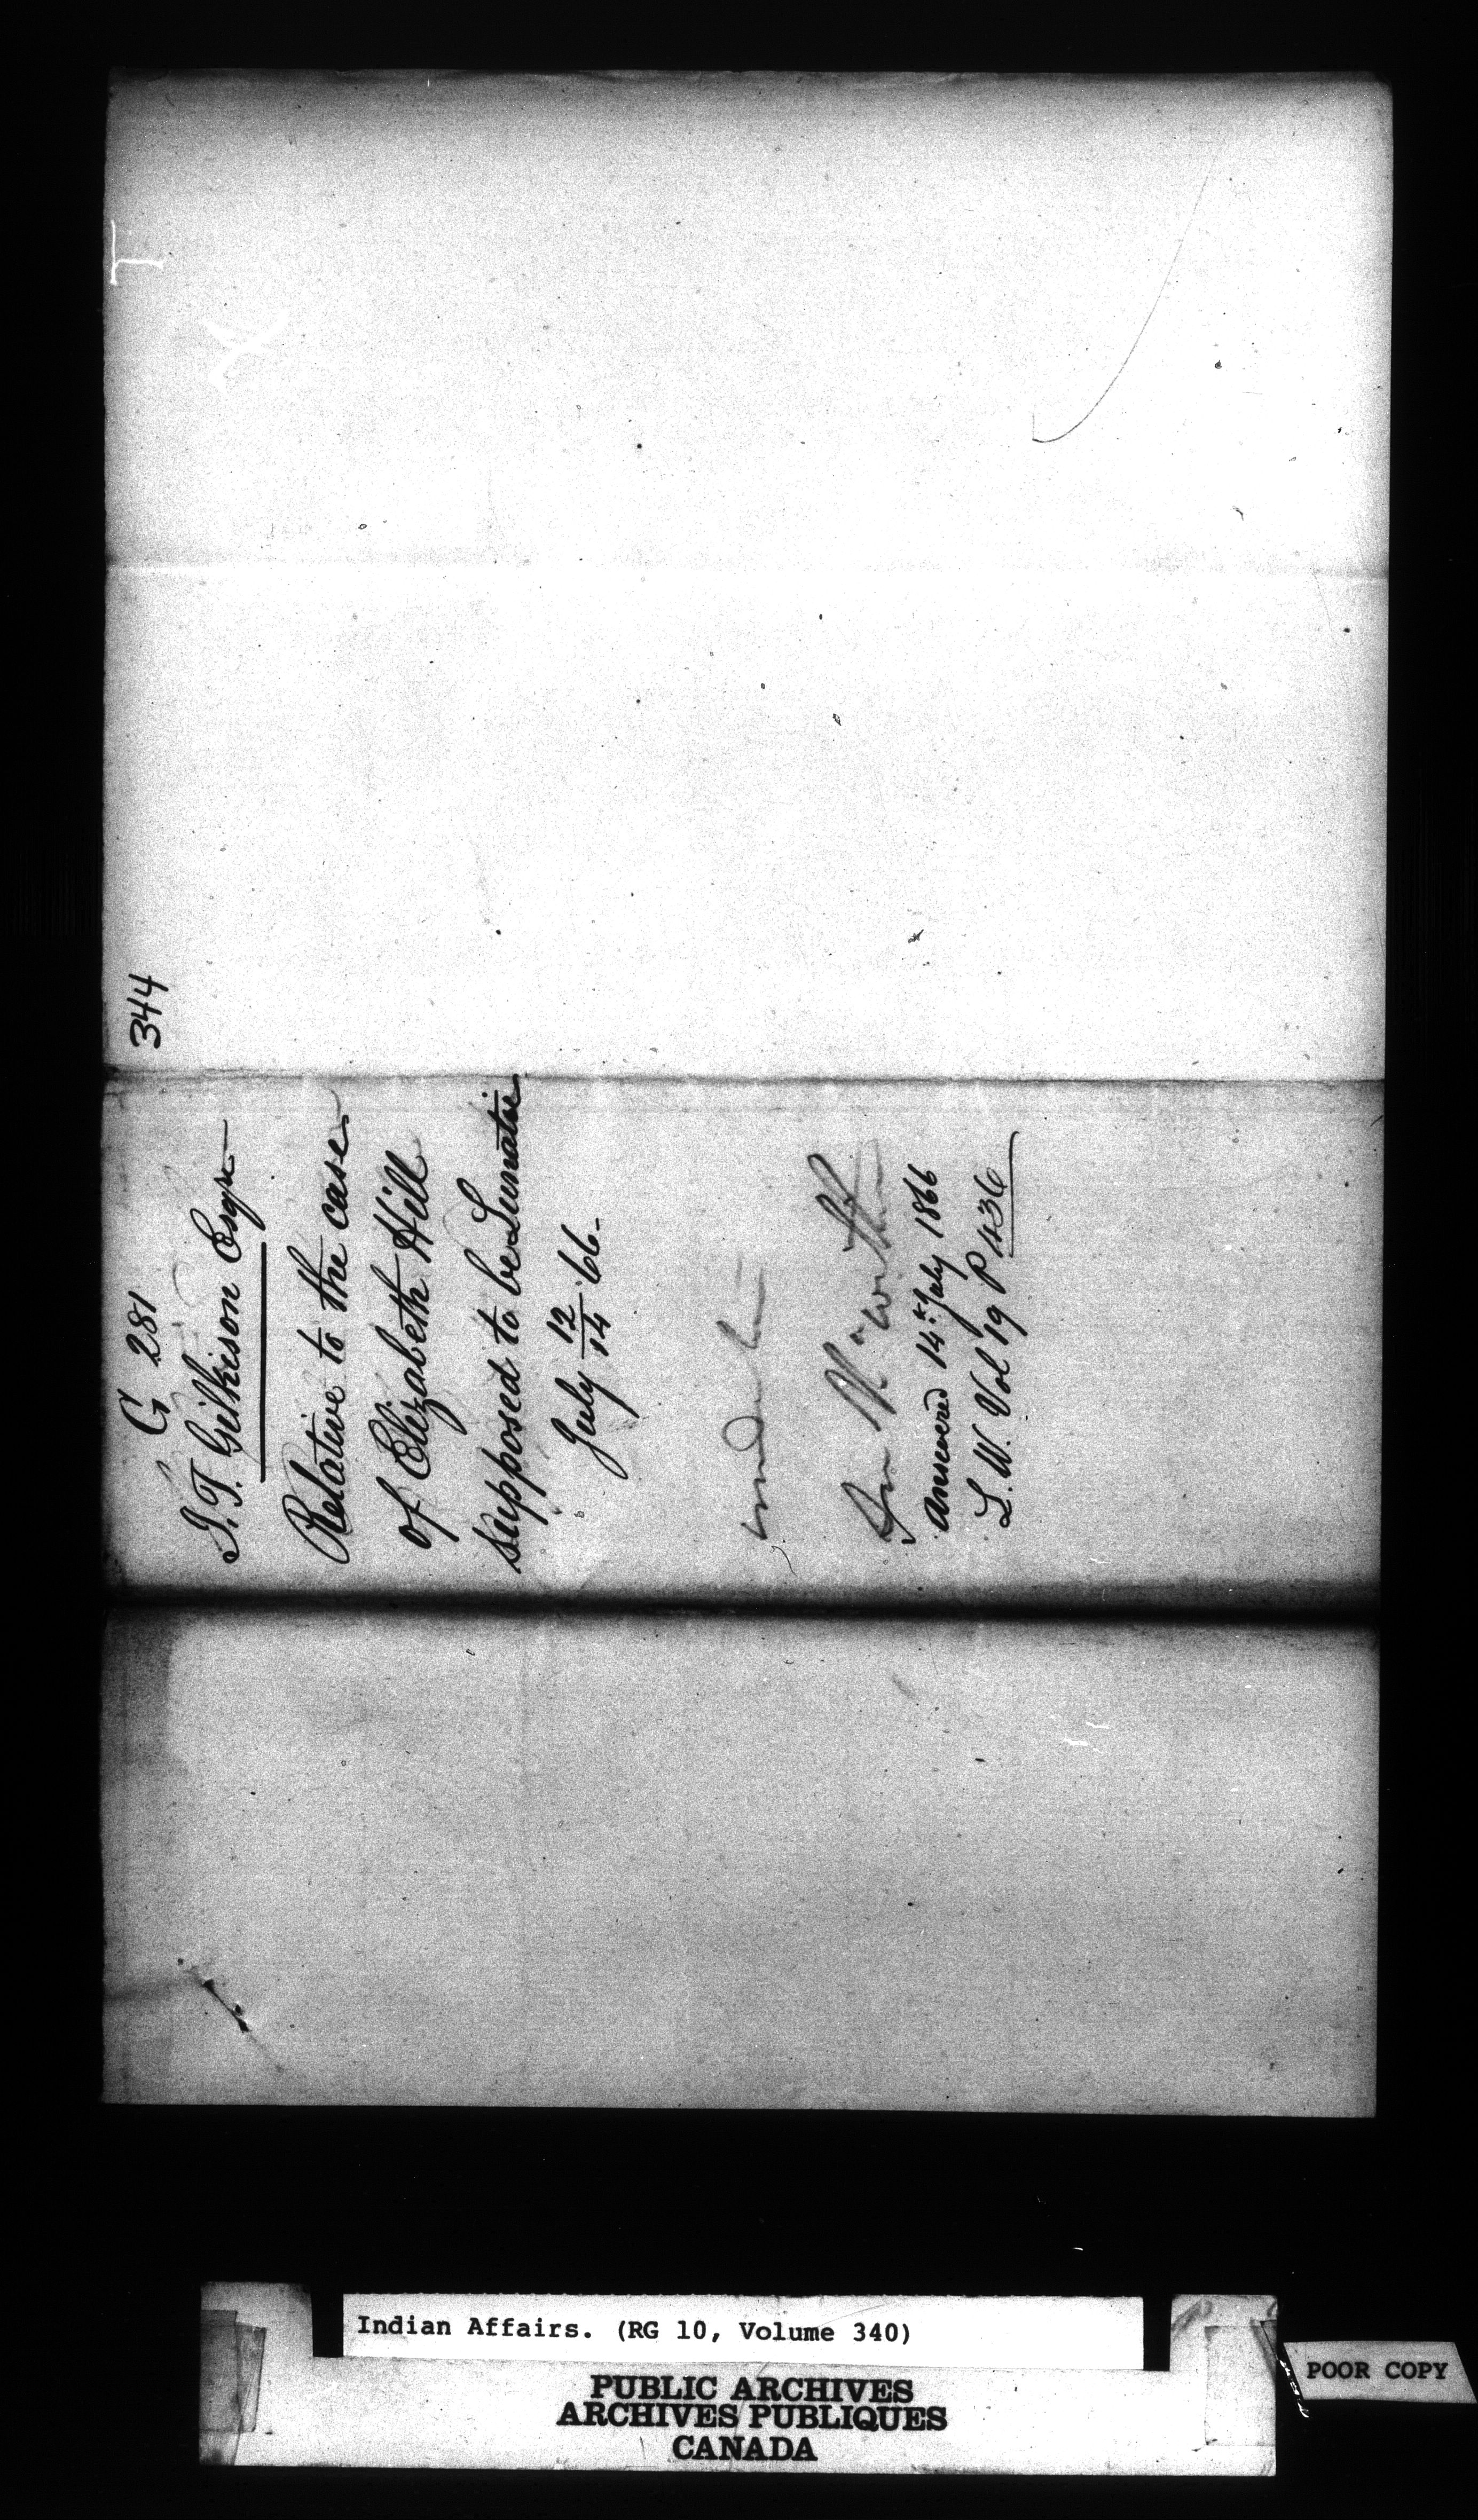 344
G 281
J. T. Gilkison Esqre
Relative to the case
of Elizabeth Hill
supposed to be Lunatic
July 12/14 '66.
Answered 14th July 1866
L. W. Vol 19 P 436
Indian Affairs. (RG 10, Volume 340)
PUBLIC ARCHIVES
ARCHIVES PUBLIQUES
CANADA
POOR COPY